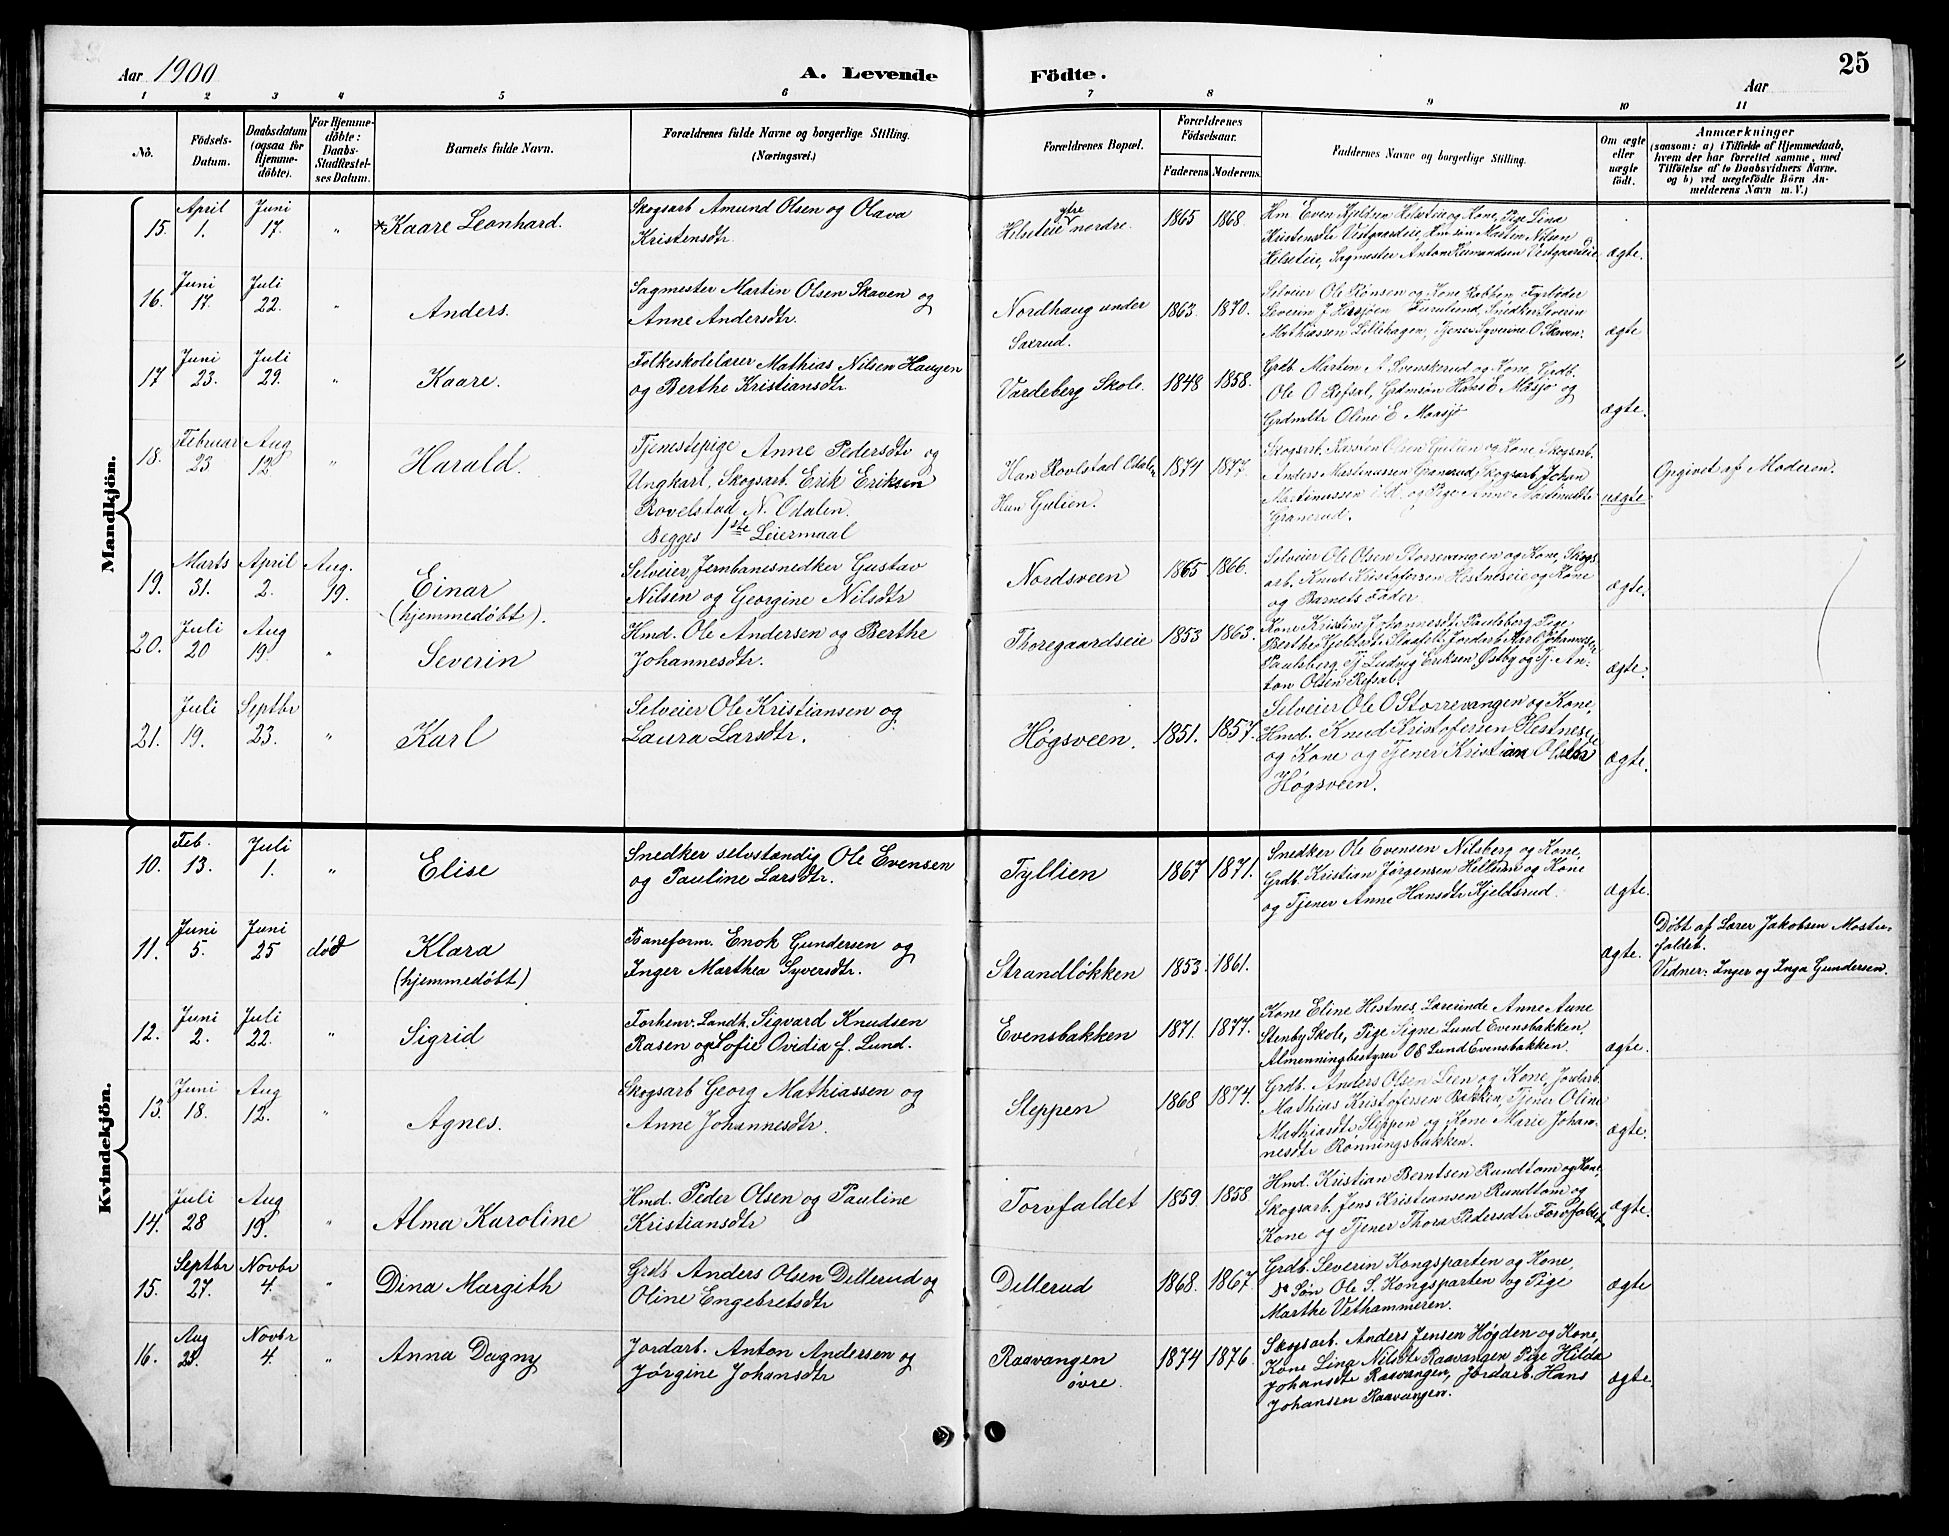 25
Aar 1900
A. Levende Födte.
Aar
1 2 3 4 5 6 7 8 9 10 11
No.
Födsels-Datum.
Daabsdatum (ogsaa for Hjemmedöbte).
For Hjemmedöbte: Daabs-Stadfæstelses Datum.
Barnets fulde Navn.
Forældrenes fulde Navne og borgerlige Stilling. (Næringsvei.)
Forældrenes Bopæl.
Forældrenes Födselsaar.
Faderens Moderens.
Faddernes Navne og borgerlige Stilling.
Om ægte eller uægte födt.
Anmærkninger
(saasom: a) i Tilfælde af Hjemmedaab,
hvem der har forrettet samme, med
Tilföielse af to Daabsvidners Navne.
og b) ved uægtefödte Börn An-
melderens Navn m. V.)
Mandkjön.
15. April 1. Juni 17. "
*Kaare Leonhard.
Skogsarb Amund Olsen og Olava
Kristensdtr.
Helseteie ytre nordre. 1865 1868
Hm Even Kjeldsen Helseteie og Kone, Pige Lina
Kristensdtr Vestgaardeie, Hmsøn Martin Nilsen
Helseteie, Sagmester Anton Vestgaardeie
ægte.
16. Juni 17. Juli 22. "
Anders.
Sagmester Martin Olsen Skaven og
Anne Andersdtr.
Nordhaug under
Saxrud. 1863. 1870.
Selveier Ole Rønsen og Kone Bakken, Fyrbøder
Severin J Hersjøen Furulund, Snedker Severin
Mathiassen Lillehagen, Tjener Syverine O Skaven.
ægte
17 Juni 23. Juli 29. "
Kaare.
Folkeskolelærer Mathias Nilsen Haugen
og Berthe Kristiansdtr
Vardeberg Skole. 1848 1858.
Grdb Marten A Svenskerud og Kone, Grdb.
Ole O Refsal, Grdmsøn Hans E Mosjø og
Grdmdtr Oline E Mosjø
ægte.
18. Februar 23 Aug 12. "
Harald.
Tjenestepige Anne Pedersdtr og
Ungkarl, Skogsarb. Erik Eriksen
Rovelstad N. Odalen.
Begges 1ste Leiermaal
Han Rovlstad Odalen
Hun Gulien. 1874 1877.
Skogsarb. Olsen Gulien og Kone, Skogsarb.
Anders Martinussen Granerud, Skogsarb. Johan
Martinussen i d. og Pige Anne Martinusdtr
Granerud.
uægte
Opgivet af Moderen.
19. Marts 31. April 2. Aug. 19.
Einar
(hjemmedøbt).
Selveier, Jernbanesnedker Gustav
Nilsen og Georgine Nilsdtr
Nordsveen 1865 1866.
Selveier Ole Olsen Storrevangen og Kone, Skogs
arb. Knud Kristofersen Hestneseie og Kone
og Barnets Fader.
ægte.
20. Juli 20 Aug 19. "
Severin
Hmd. Ole Andersen og Berthe
Johannesdtr.
Thoregaardseie 1853 1863.
Kone Kristine Johannesdtr Paulsberg, Pige
Berthe Kjeldsdtr Jordarb Karl Johannesen
Paulsberg. Tj Ludvig Eriksen Østby og Tj. An-
ton Olsen Refsal.
ægte.
21. Juli 19. Septbr 23. "
Karl
Selveier Ole Kristiansen og
Laura Larsdtr.
Høgsveen. 1851. 1857.
Selveier Ole O Storrevangen og Kone,
Hmd. Knud Kristofersen Hestneseie
og Kone og Tjener Kristian Olsen
Høgsveen.
ægte.
Kvindekjön.
10. Feb. 13. Juli 1. "
Elise
Snedker selvstændig Ole Evensen
og Pauline Larsdtr.
Tyllien 1867 1871.
Snedker Ole Evensen Nilsberg og Kone,
Grdb. Kristian Jørgensen og Kone
og Tjener Anne Hansdtr Kjeldsrud.
ægte.
11. Juni 5. Juni 25 død
Klara
(hjemmedøbt)
Baneform. Enok Gundersen og
Inger Marthea Syversdtr.
Strandløkken 1853. 1861.
ægte.
Døbt af Lærer Jakobsen Mostu-
faldet.
Vidner: Inger og Inga Gundersen.
12. Juni 2. Juli 22. "
Sigrid
Forhenv. Landh. Sigvard Knudsen
Rasen og Sofie Ovidia f. Lund.
Evensbakken 1871. 1877.
Kone Eline Hestnes, Lærerinde Anne Aune
Stenby Skole, Pige Signe Lund Evensbakken,
Almenningbestyrer O E Lund Evensbakken.
ægte.
13. Juni 18. Aug 12. "
Agnes.
Skogsarb Georg Mathiassen og
Anne Johannesdtr.
Sleppen 1868 1874.
Grdb. Anders Olsen Lien og Kone, Jordarb.
Mathias Kristofersen Bakken, Tjener Oline
Mathiasdtr Sleppen og Kone Marie Johan-
nesdtr Rønningsbakken.
ægte.
14. Juli 28 Aug 19. "
Alma Karoline
Hmd. Peder Olsen og Pauline
Kristiansdtr
Torvfaldet 1859 1858
Hmd. Kristian Berntsen Rundtom og Kone,
Skogsarb. Jens Kristiansen Rundtom og
Kone og Tjener Thora Pedersdtr Torvfaldet
ægte.
15. Septbr 27. Novbr 4. "
Dina Margith
Grdb Anders Olsen Dellerud og
Oline Engebretsdtr
Dellerud 1868. 1867.
Grdb. Severin Kongsparten og Kone,
Ds Søn Ole S. Kongsparten og Pige
Marthe Vethammeren.
ægte
16. Aug 29. Novbr 4. "
Anna Dagny
Jordarb. Anton Andersen og
Jørgine Johansdtr
Raavangen
øvre. 1874 1876.
Skogsarb. Anders Jensen Høgden og Kone,
Kone Lina Nilsdtr Raavangen, Pige Hilda
Johansdtr Raavangen, Jordarb. Hans
Johansen Raavangen.
ægte.